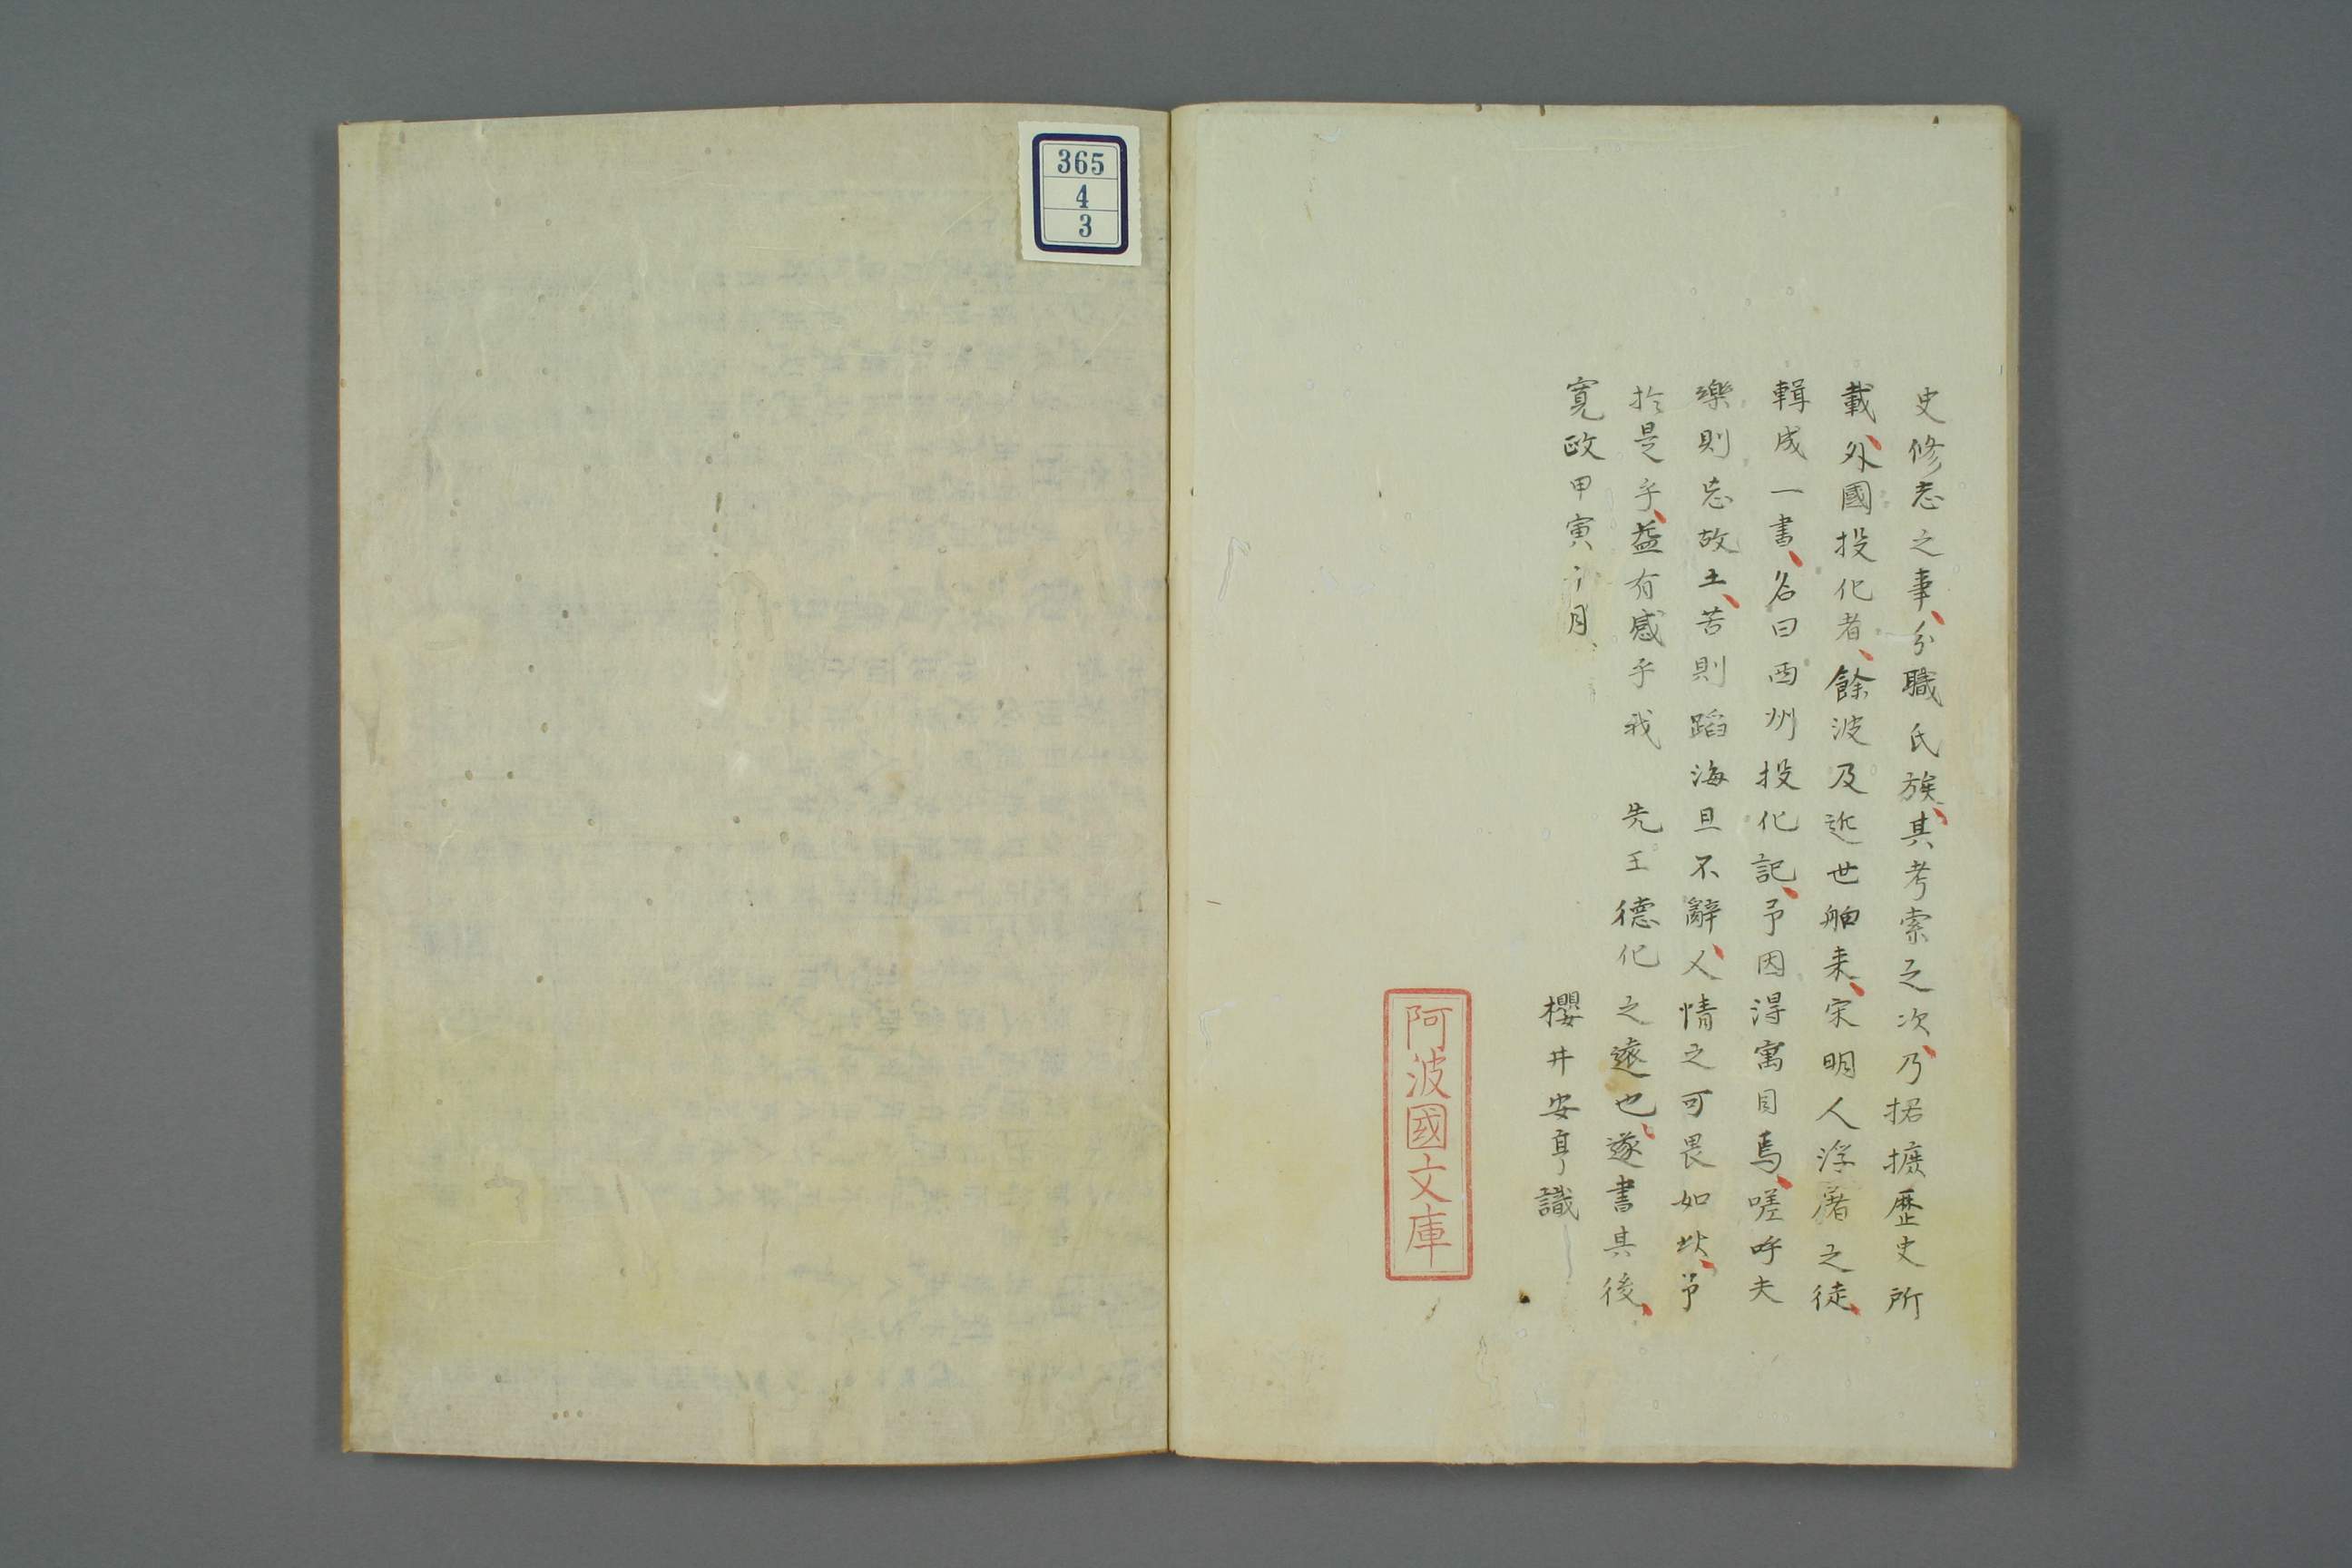 史修志之事、分職氏族、其考索之次、乃捃摭歴史所
載、外國投化者、餘波及近世舶来、宋明人浮屠之徒、
輯成一書、名曰西州投化記、予因得寓目焉、嗟呼夫
樂則忘故土、苦則蹈海且不辭、人情之可畏如此、予
於是乎、益有感乎我　先王德化之遠也、遂書其後、
寛政甲寅　月、
櫻井安亨識
阿波國文庫
365
4
3